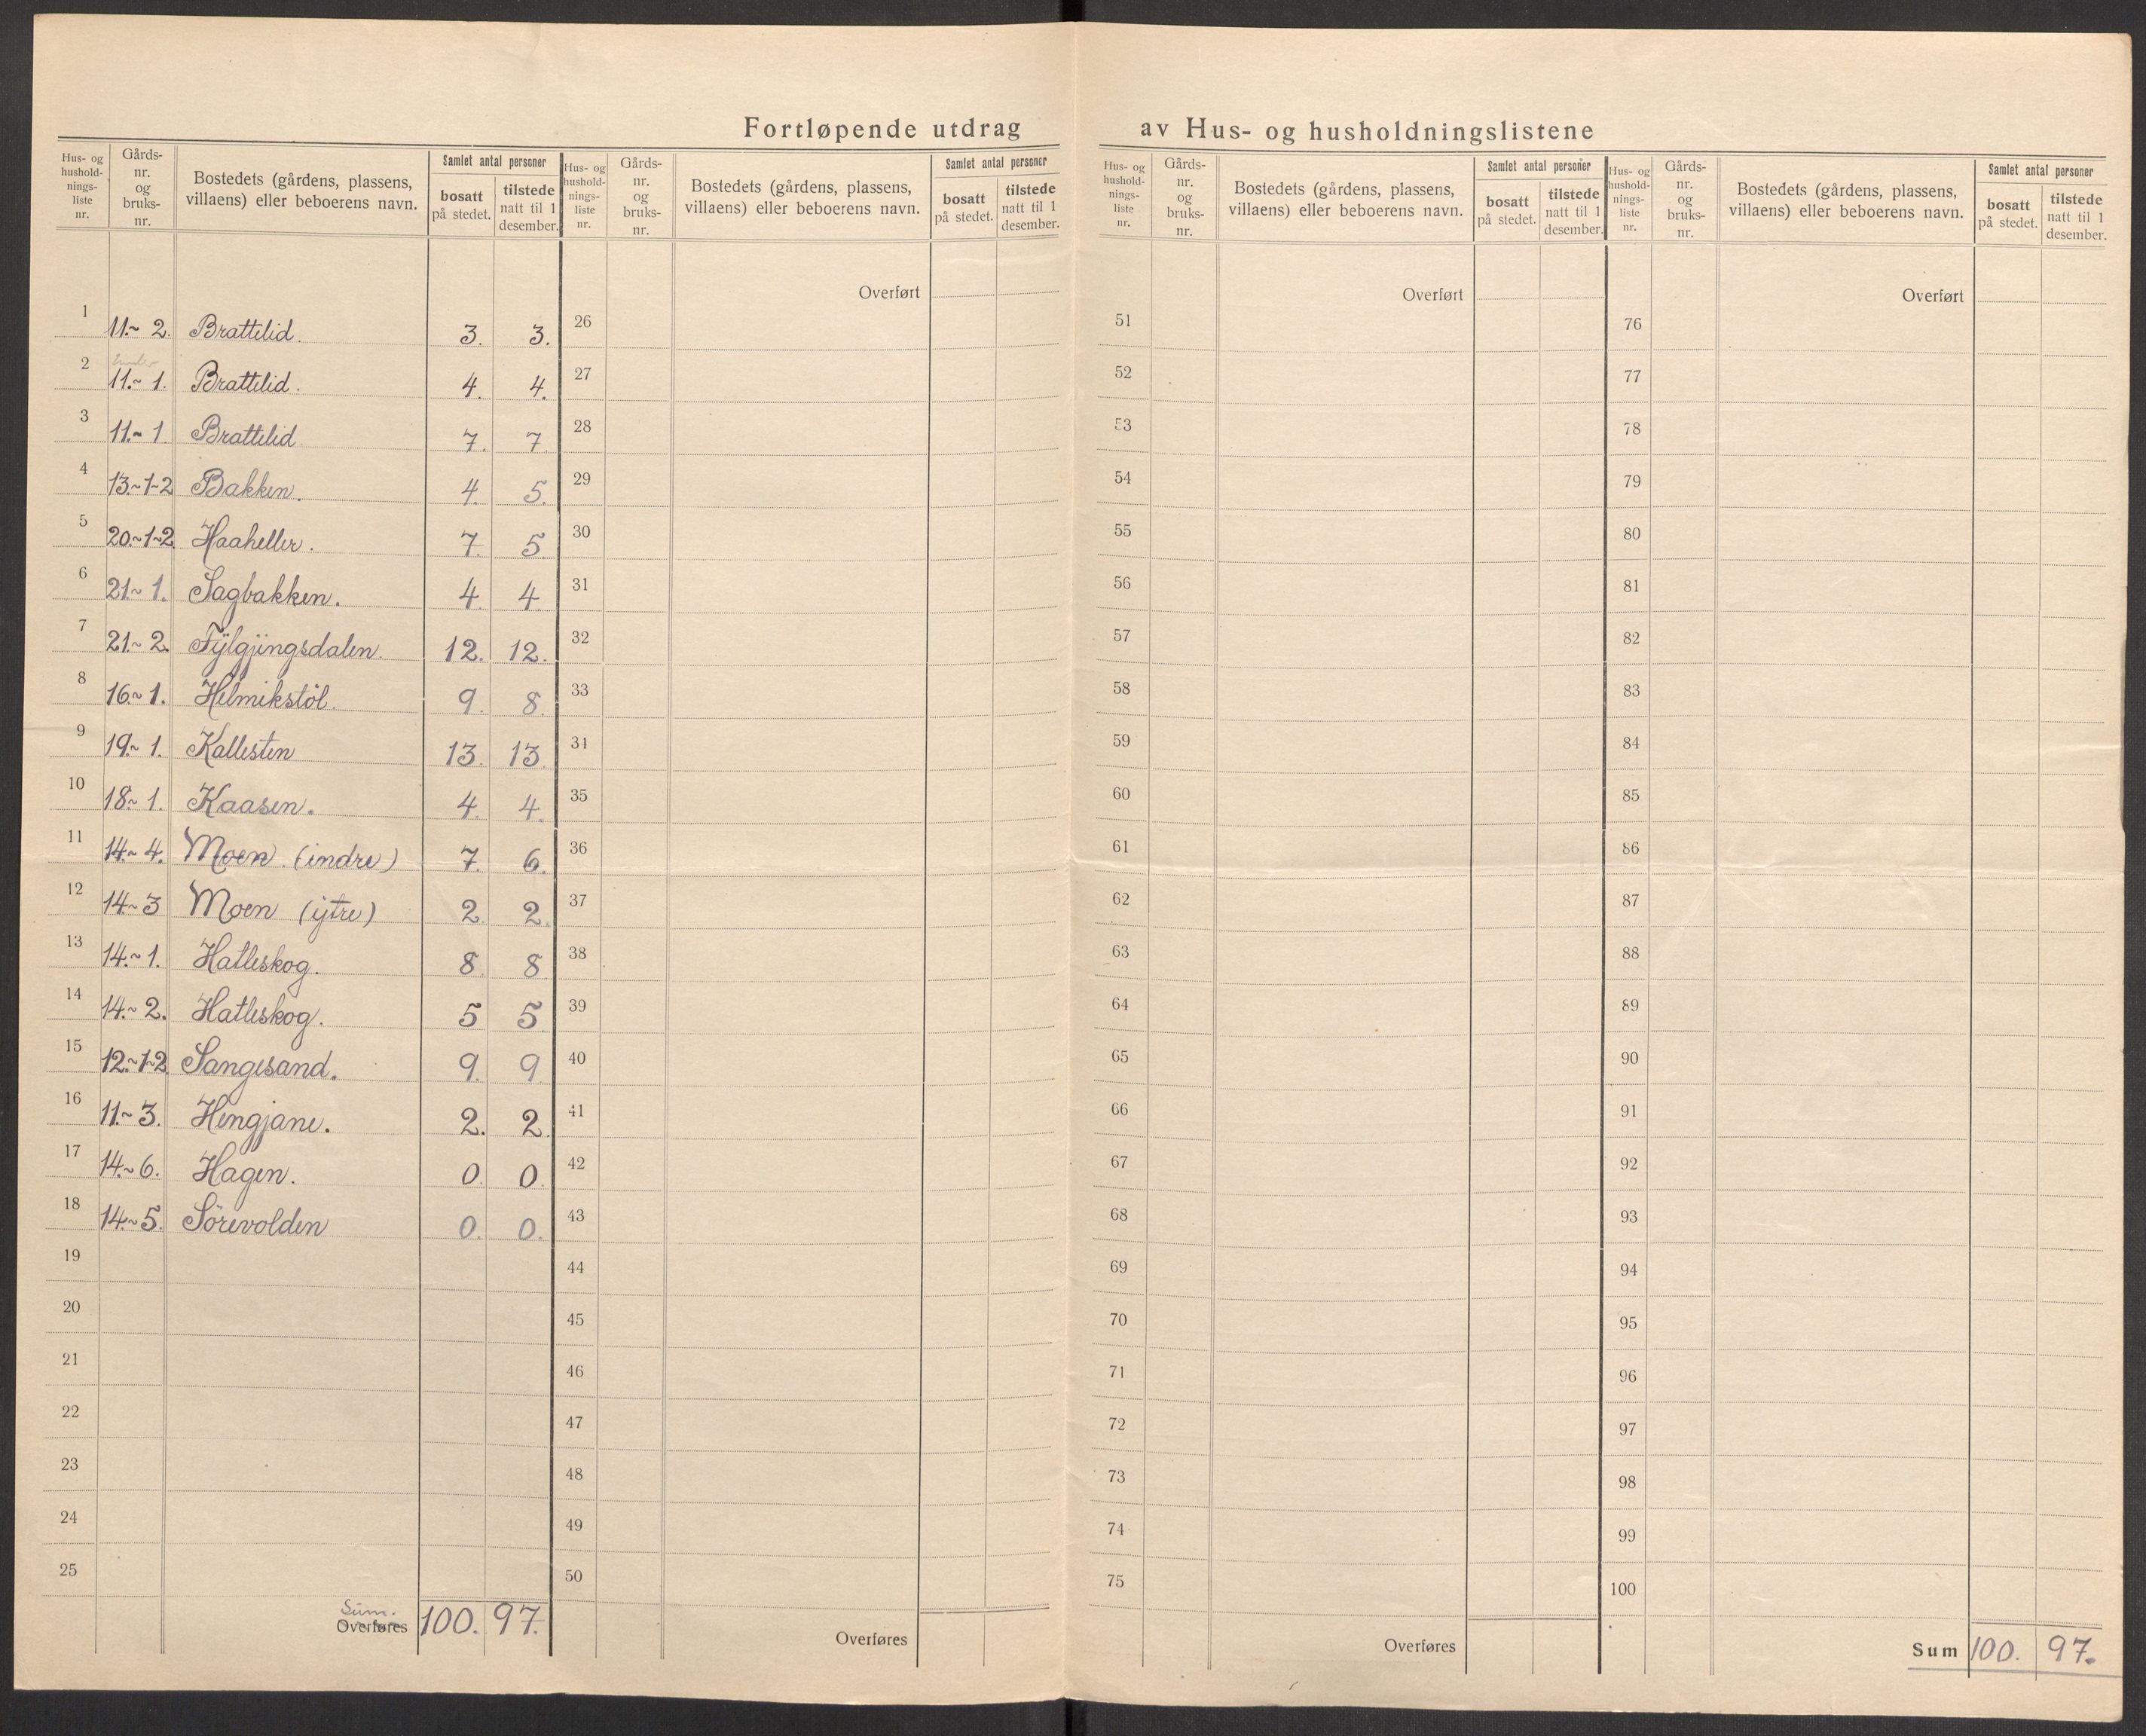 Fortløpende utdrag av Hus- og husholdningslistene
Hus- og hushold- nings- liste nr. | Gårds- nr. og bruks- nr. | Bostedets (gårdens, plassens, villaens) eller beboerens navn. | Samlet antal personer | bosatt på stedet. | tilstede natt til 1 desember.
1 11.~ 2. Brattelid. 3. 3.
2 under 11.~ 1. Brattelid. 4. 4.
3 11.~ 1. Brattelid 7. 7
4 13.~1~2 Bakken. 4. 5.
5 20.~1~2 Haaheller. 7. 5
6 21.~ 1. Sagbakken. 4. 4
7 21.~ 2. Fylgjingsdalen. 12. 12.
8 16.~ 1. Helmikstöl. 9. 8.
9 19.~ 1. Kallesten 13. 13
10 18.~ 1. Kaasen. 4. 4.
11 14.~ 4. Moen (indre) 7. 6.
12 14.~ 3 Moen (ytre) 2. 2.
13 14.~ 1. Hatleskog. 8. 8
14 14.~ 2. Hatleskog. 5 5
15 12.~1~2 Sangesand. 9. 9
16 11.~ 3. Hengjane. 2. 2.
17 14.~ 6. Hagen. 0. 0.
18 14.~ 5. Sörevolden 0. 0.
19
20
21
22
23
24
25
Sum.
Overføres 100. 97.
Hus- og hushold- nings- liste nr. | Gårds- nr. og bruks- nr. | Bostedets (gårdens, plassens, villaens) eller beboerens navn. | Samlet antal personer | bosatt på stedet. | tilstede natt til 1 desember.
Overført
26
27
28
29
30
31
32
33
34
35
36
37
38
39
40
41
42
43
44
45
46
47
48
49
50
Overføres
Hus- og hushold- nings- liste nr. | Gårds- nr. og bruks- nr. | Bostedets (gårdens, plassens, villaens) eller beboerens navn. | Samlet antal personer | bosatt på stedet. | tilstede natt til 1 desember.
Overført
51
52
53
54
55
56
57
58
59
60
61
62
63
64
65
66
67
68
69
70
71
72
73
74
75
Overføres
Hus- og hushold- nings- liste nr. | Gårds- nr. og bruks- nr. | Bostedets (gårdens, plassens, villaens) eller beboerens navn. | Samlet antal personer | bosatt på stedet. | tilstede natt til 1 desember.
Overført
76
77
78
79
80
81
82
83
84
85
86
87
88
89
90
91
92
93
94
95
96
97
98
99
100
Sum 100. 97.